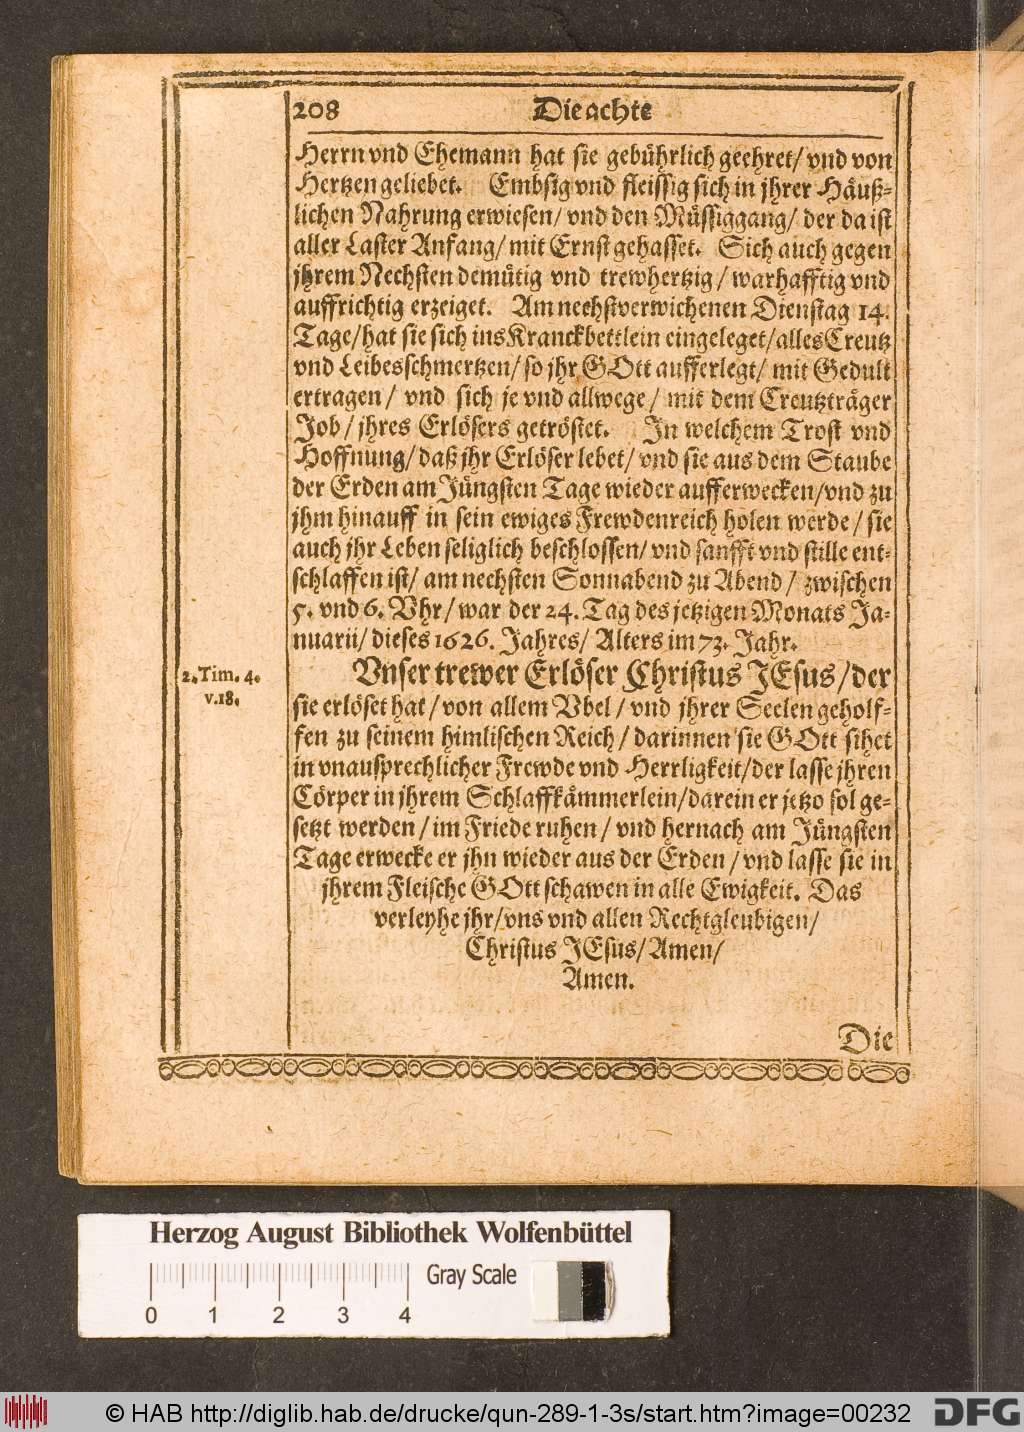 208 Die achte
Herrn vnd Ehemann hat sie gebührlich geehret/ vnd von
Hertzen geliebet. Embsig vnd fleissig sich in jhrer Häuß-
lichen Nahrung erwiesen/ vnd den Müssiggang/ der da ist
aller Laster Anfang/ mit Ernst gehasset. Sich auch gegen
jhrem Nechsten demütig vnd trewhertzig/ warhafftig vnd
auffrichtig erzeiget. Am nechstverwichenen Dienstag 14.
Tage/ hat sie sich ins Kranckbettlein eingeleget/ alles Creutz
vnd Leibesschmertzen/ so jhr GOtt aufferlegt/ mit Gedult
ertragen/ vnd sich je vnd allwege/ mit dem Creutzträger
Job/ jhres Erlösers getröstet. In welchem Trost vnd
Hoffnung/ daß jhr Erlöser lebet/ vnd sie aus dem Staube
der Erden am Jüngsten Tage wieder aufferwecken/ vnd zu
jhm hinauff in sein ewiges Frewdenreich holen werde/ sie
auch jhr Leben seliglich beschlossen/ vnd sanfft vnd stille ent-
schlaffen ist/ am nechsten Sonnabend zu Abend/ zwischen
5. vnd 6. Vhr/ war der 24. Tag des jetzigen Monats Ja-
nuarii/ dieses 1626. Jahres/ Alters im 73. Jahr.
2. Tim. 4.
v. 18.
Vnser trewer Erlöser Christus JEsus/ der
sie erlöset hat/ von allem Vbel/ vnd jhrer Seelen geholf-
fen zu seinem himlischen Reich/ darinnen sie GOtt sihet
in vnausprechlicher Frewde vnd Herrligkeit/ der lasse jhren
Cörper in jhrem Schlaffkämmerlein/ darein er jetzo sol ge-
setzt werden/ im Friede ruhen/ vnd hernach am Jüngsten
Tage erwecke er jhn wieder aus der Erden/ vnd lasse sie in
jhrem Fleische GOtt schawen in alle Ewigkeit. Das
verleyhe jhr/ vns vnd allen Rechtgleubigen/
Christus JEsus/ Amen/
Amen.
Die
Herzog August Bibliothek Wolfenbüttel
Gray Scale
0 1 2 3 4
© HAB http://diglib.hab.de/drucke/qun-289-1-3s/start.htm?image=00232 DFG